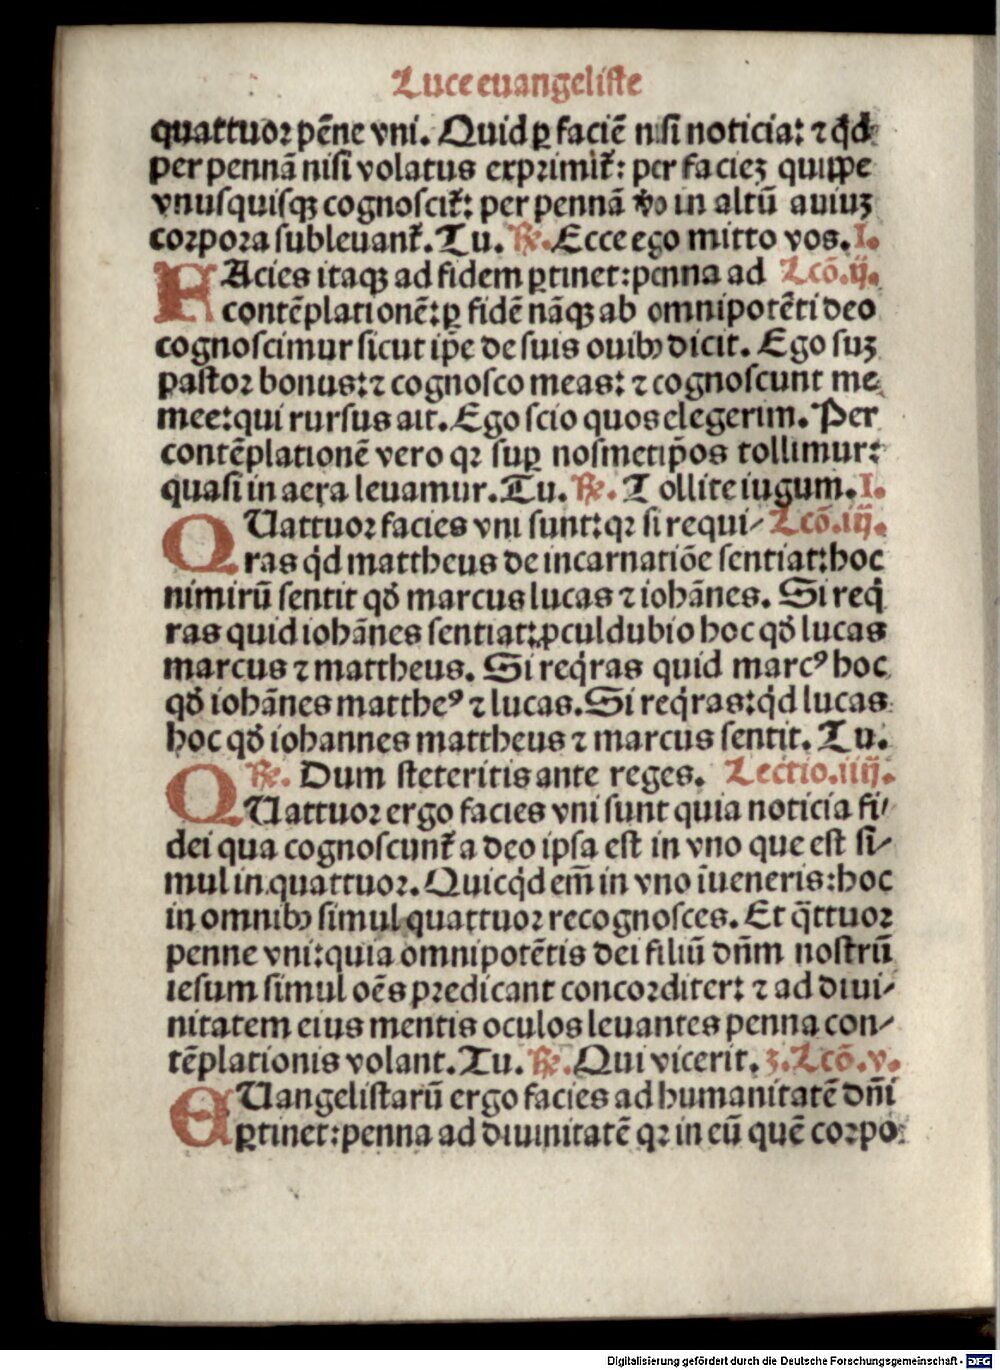 Luce euangeliste
quattuor pēne vni. Quid ꝑ faciē nisi noticia: ⁊ qd̄
per pennā nisi volatus exprimit᷑: per faciez quippe
vnusquisqꝫ cognoscit᷑: per pennā ꝟo in altū auiuꝫ
corpora subleuant᷑. Tu. ℟. Ecce ego mitto vos. I.
FAcies itaqꝫ ad fidem ꝑtinet: penna ad Lcō. ij.
contēplationē: ꝑ fidē nāqꝫ ab omnipotēti deo
cognoscimur sicut ip̄e de suis ouibꝰ dicit. Ego suꝫ
pastor bonus: ⁊ cognosco meas: ⁊ cognoscunt me
mee: qui rursus ait. Ego scio quos elegerim. Per
contēplationē vero qꝛ suꝑ nosmetip̄os tollimur:
quasi in aera leuamur. Tu. ℟. Tollite iugum. I.
QUattuor facies vni sunt: qꝛ si requi- Lcō. iij.
ras qd̓ mattheus de incarnatiōe sentiat: hoc
nimirū sentit qď marcus lucas ⁊ iohānes. Si req̓
ras quid iohānes sentiat: ꝓculdubio hoc qď lucas
marcus ⁊ mattheus. Si req̓ras quid marcꝰ hoc
qď iohānes mattheꝰ ⁊ lucas. Si req̓ras: qd̓ lucas
hoc qď iohannes mattheus ⁊ marcus sentit. Tu.
℟. Dum steteritis ante reges. Lectio. iiij.
QUattuor ergo facies vni sunt quia noticia fi-
dei qua cognoscunt᷑ a deo ipsa est in vno que est si-
mul in quattuor. Quicqd̓ em̄ in vno īueneris: hoc
in omnibꝰ simul quattuor recognosces. Et q̄ttuor
penne vni: quia omnipotētis dei filiū dn̄m nostrū
iesum simul oēs predicant concorditer: ⁊ ad diui-
nitatem eius mentis oculos leuantes penna con-
tēplationis volant. Tu. ℟. Qui vicerit. 3. Lcō. v.
EUangelistarū ergo facies ad humanitatē dn̄i
ꝑtinet: penna ad diuinitatē qꝛ in eū quē corpo
Digitalisierung gefördert durch die Deutsche Forschungsgemeinschaft - DFG